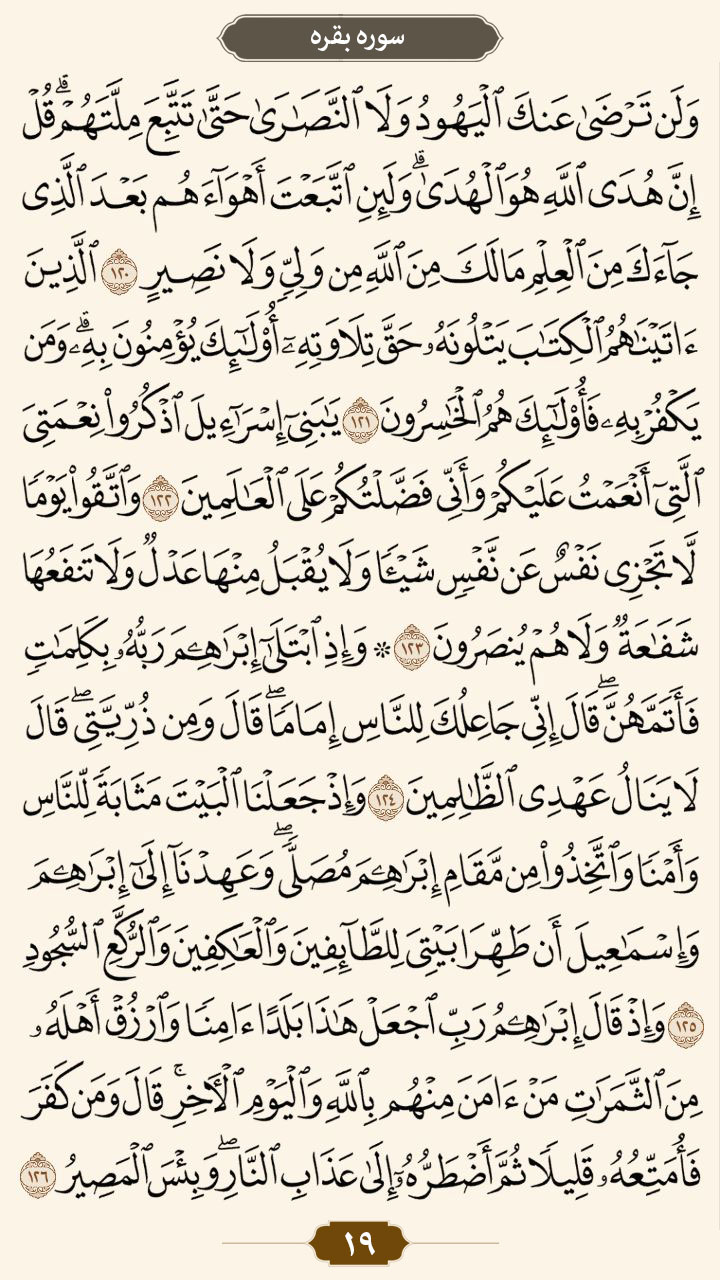 سوره بقره
وَلَن تَرْضَىٰ عَنكَ ٱلْيَهُودُ وَلَا ٱلنَّصَـٰرَىٰ حَتَّىٰ تَتَّبِعَ مِلَّتَهُمْ ۗ قُلْ
إِنَّ هُدَى ٱللَّهِ هُوَ ٱلْهُدَىٰ ۗ وَلَئِنِ ٱتَّبَعْتَ أَهْوَآءَهُم بَعْدَ ٱلَّذِى
جَآءَكَ مِنَ ٱلْعِلْمِ مَا لَكَ مِنَ ٱللَّهِ مِن وَلِىٍّ وَلَا نَصِيرٍ ١٢٠ ٱلَّذِينَ
ءَاتَيْنَـٰهُمُ ٱلْكِتَـٰبَ يَتْلُونَهُۥ حَقَّ تِلَاوَتِهِۦٓ أُو۟لَـٰٓئِكَ يُؤْمِنُونَ بِهِۦ ۗ وَمَن
يَكْفُرْ بِهِۦ فَأُو۟لَـٰٓئِكَ هُمُ ٱلْخَـٰسِرُونَ ١٢١ يَـٰبَنِىٓ إِسْرَٰٓءِيلَ ٱذْكُرُوا۟ نِعْمَتِىَ
ٱلَّتِىٓ أَنْعَمْتُ عَلَيْكُمْ وَأَنِّى فَضَّلْتُكُمْ عَلَى ٱلْعَـٰلَمِينَ ١٢٢ وَٱتَّقُوا۟ يَوْمًا
لَّا تَجْزِى نَفْسٌ عَن نَّفْسٍ شَيْـًٔا وَلَا يُقْبَلُ مِنْهَا عَدْلٌ وَلَا تَنفَعُهَا
شَفَـٰعَةٌ وَلَا هُمْ يُنصَرُونَ ١٢٣ * وَإِذِ ٱبْتَلَىٰٓ إِبْرَٰهِـۧمَ رَبُّهُۥ بِكَلِمَـٰتٍ
فَأَتَمَّهُنَّ ۖ قَالَ إِنِّى جَاعِلُكَ لِلنَّاسِ إِمَامًا ۖ قَالَ وَمِن ذُرِّيَّتِى ۖ قَالَ
لَا يَنَالُ عَهْدِى ٱلظَّـٰلِمِينَ ١٢٤ وَإِذْ جَعَلْنَا ٱلْبَيْتَ مَثَابَةً لِّلنَّاسِ
وَأَمْنًا وَٱتَّخِذُوا۟ مِن مَّقَامِ إِبْرَٰهِـۧمَ مُصَلًّى ۖ وَعَهِدْنَآ إِلَىٰٓ إِبْرَٰهِـۧمَ
وَإِسْمَـٰعِيلَ أَن طَهِّرَا بَيْتِىَ لِلطَّآئِفِينَ وَٱلْعَـٰكِفِينَ وَٱلرُّكَّعِ ٱلسُّجُودِ
١٢٥ وَإِذْ قَالَ إِبْرَٰهِـۧمُ رَبِّ ٱجْعَلْ هَـٰذَا بَلَدًا ءَامِنًا وَٱرْزُقْ أَهْلَهُۥ
مِنَ ٱلثَّمَرَٰتِ مَنْ ءَامَنَ مِنْهُم بِٱللَّهِ وَٱلْيَوْمِ ٱلْـَٔاخِرِ ۖ قَالَ وَمَن كَفَرَ
فَأُمَتِّعُهُۥ قَلِيلًا ثُمَّ أَضْطَرُّهُۥٓ إِلَىٰ عَذَابِ ٱلنَّارِ ۖ وَبِئْسَ ٱلْمَصِيرُ ١٢٦
١٩